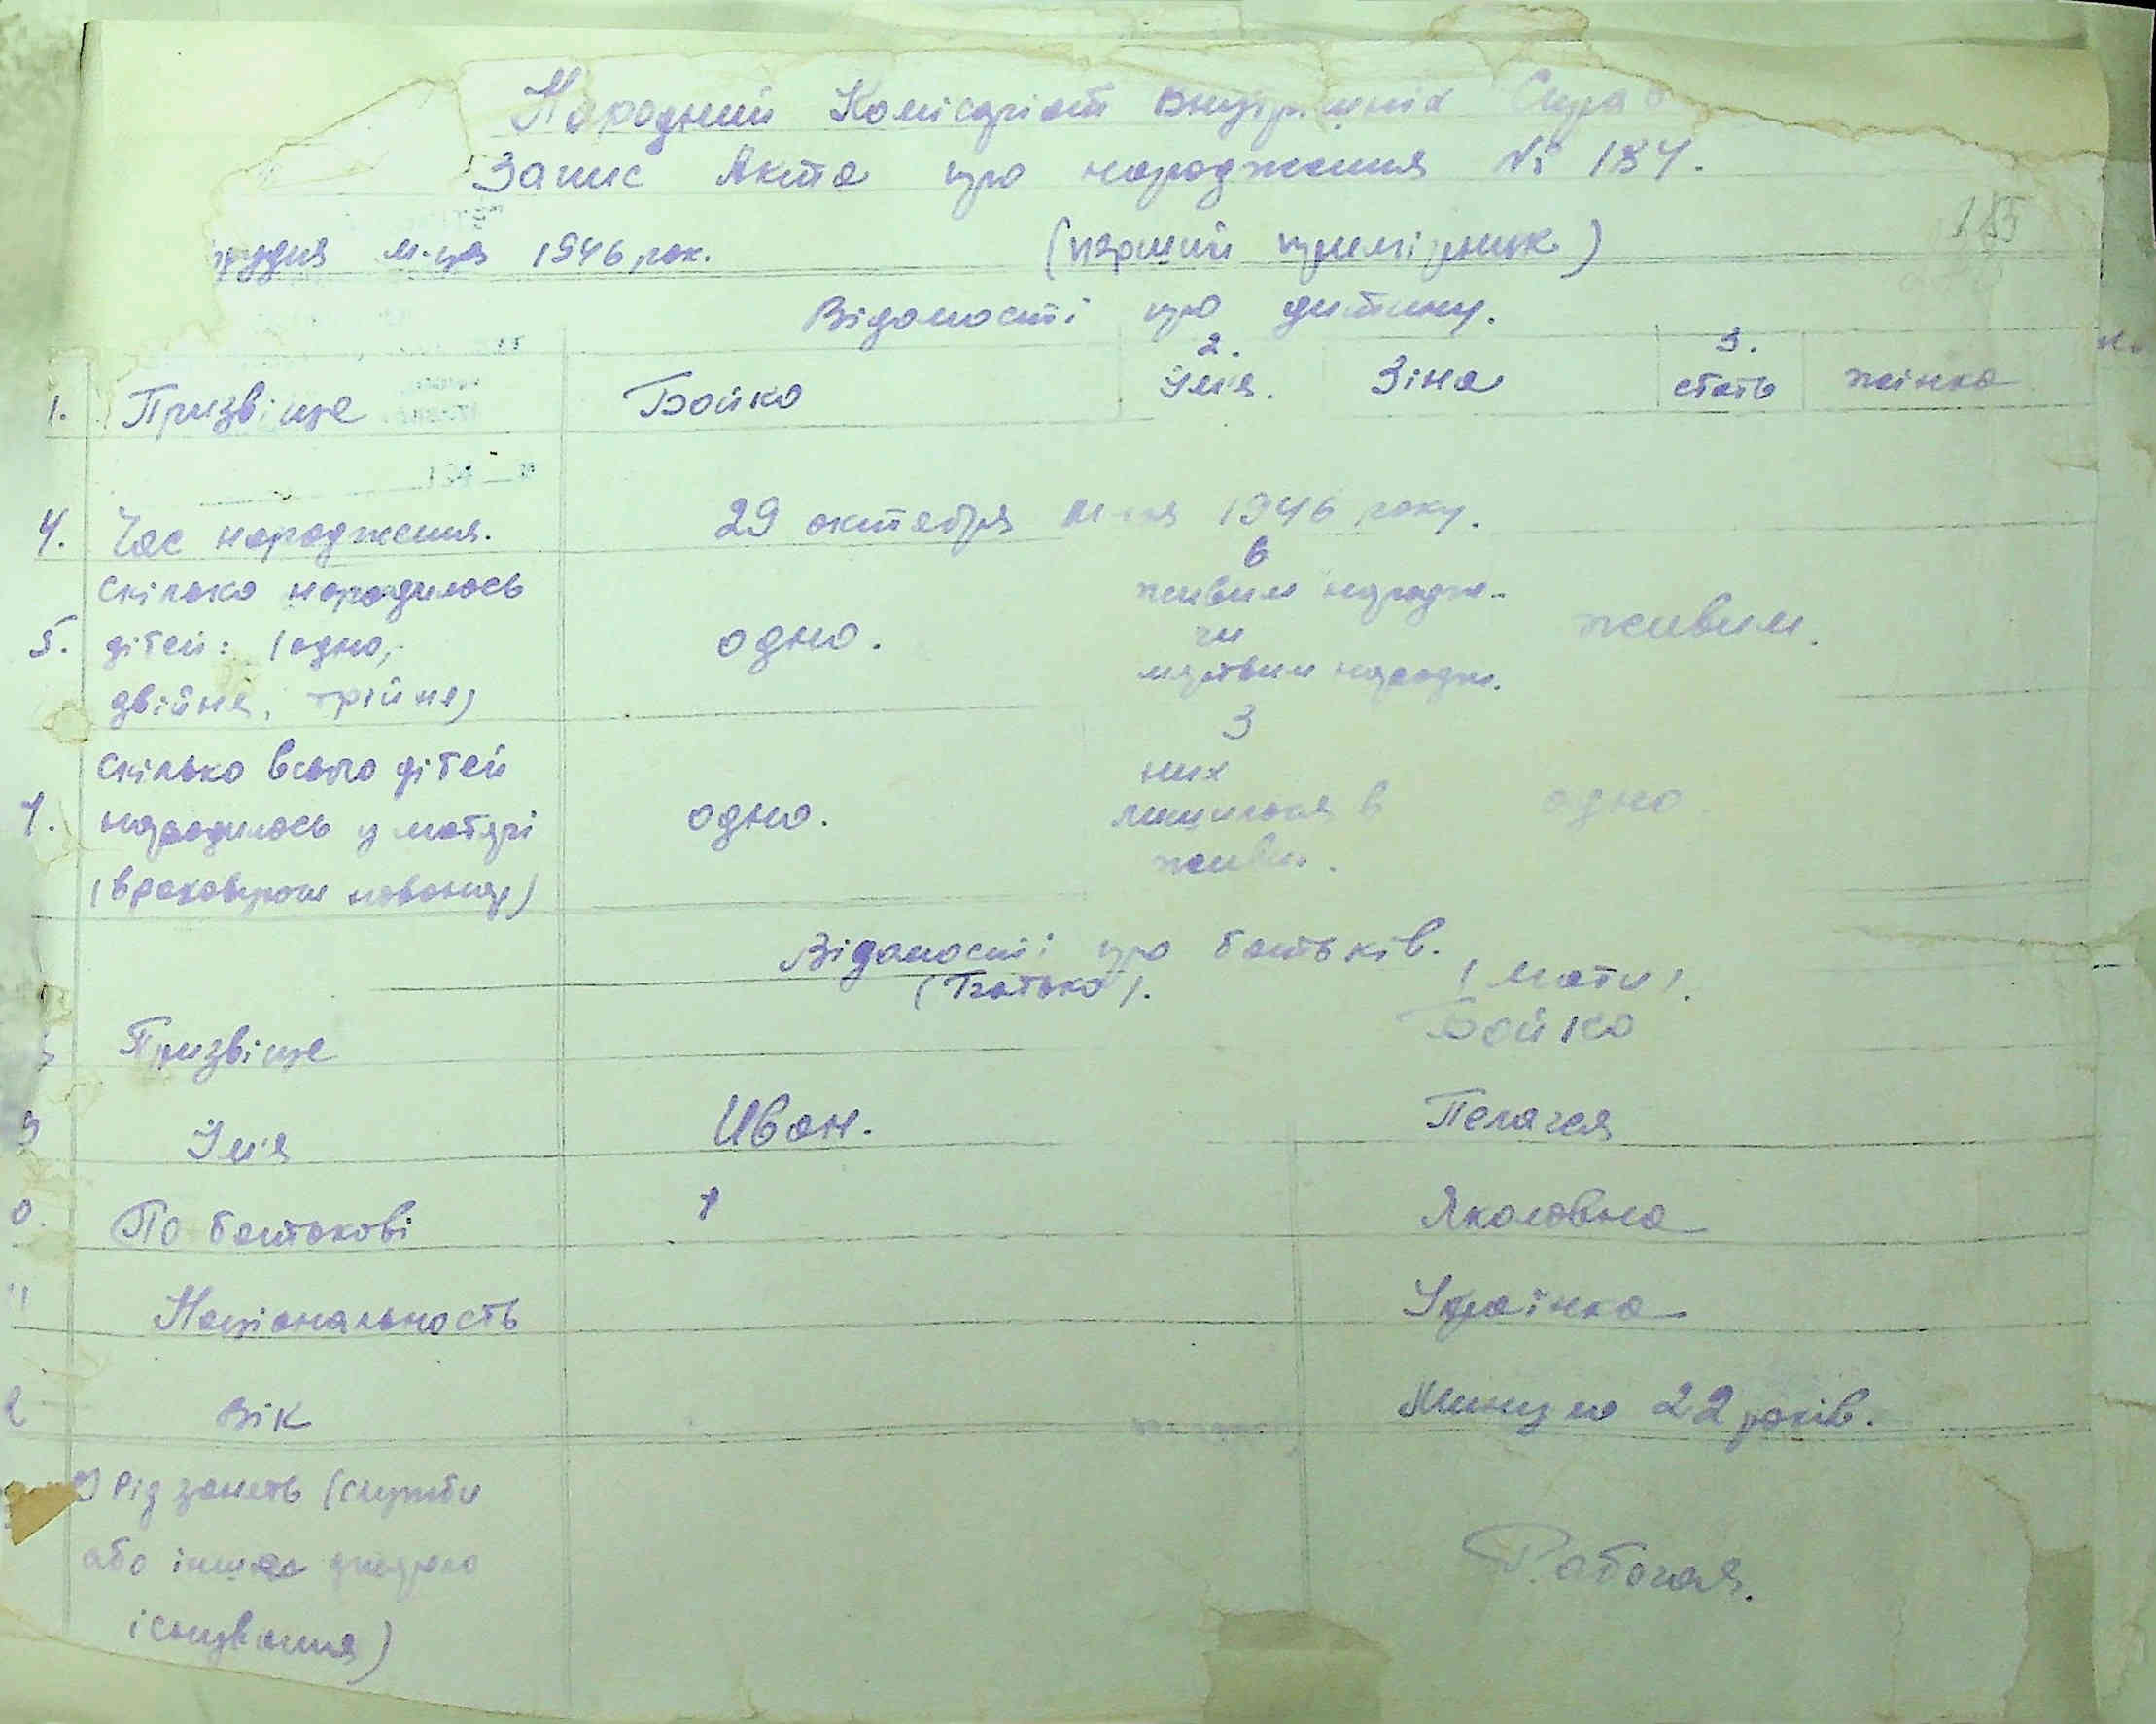 Народний Комісаріат Внутрішніх Справ
Запис Акта про народження № 184.
грудня м-ця 1946 рок. (перший примірник) 185
Відомості про дитину.
1. Призвіще Бойко 2. Імя. Зіна 3. стать жінка
4. Час народження. 29 октября м-ця 1946 року.
Скілько народилось
5. дітей: (одно,
двійня, трійня)
одно.
6
живим народж.
чи
мертвим народж.
живим.
Скілько всього дітей
7. народилось у матері
одно.
З
них
лишилося в
живих.
одно.
Відомості про батьків.
(Батько). (Мати).
Призвіще Бойко
9 Імя Иван. Пелагея
0. По батькові Якововна
11 Національность Українка
2 Вік Минуло 22 років.
Рід занять (служби
або інше джерело
існування)
Рабочая.